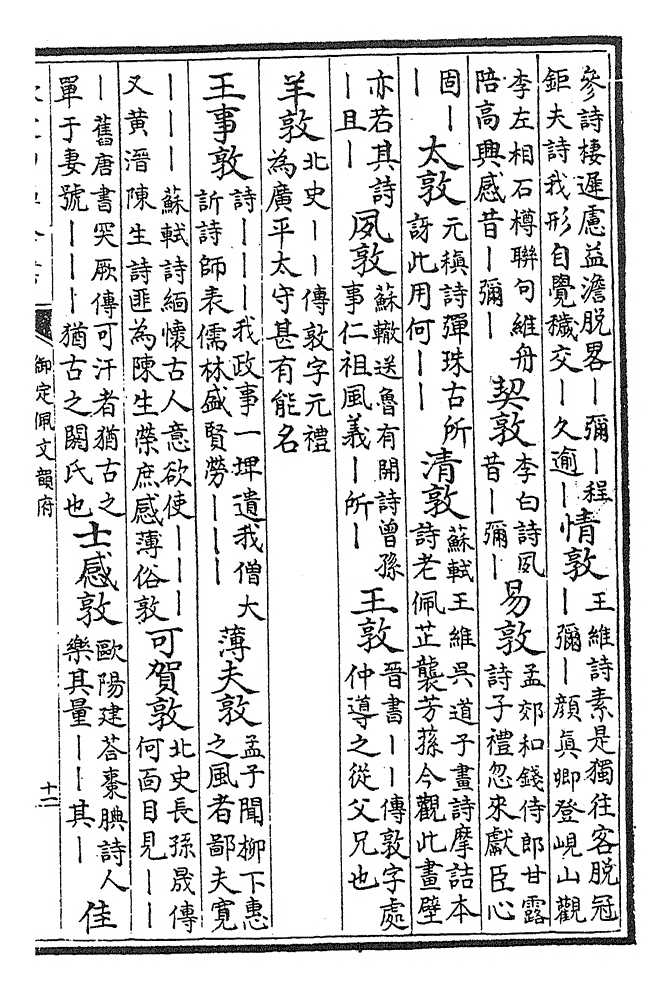 參詩棲遲慮益澹脫畧丨彌丨程鉅夫詩我形自覺穢交丨久逾丨情敦王維詩素是獨往客脫冠丨彌丨顏眞卿登峴山觀
李左相石樽聯句維舟陪高興感昔丨彌丨契敦李白詩夙昔丨彌丨易敦孟郊和錢侍郎甘露詩子禮忽來獻臣心
固丨丨太敦元稹詩彈珠古所訝此用何丨丨清敦蘇軾王維吳道子畫詩摩詰本詩老佩芷襲芳蓀今觀此畫壁
亦若其詩丨且丨夙敦蘇轍送魯有開詩曾孫事仁祖風義丨所丨王敦晉書丨丨傳敦字處仲導之從父兄也
羊敦北史丨丨傳敦字元禮為廣平太守甚有能名
王事敦詩丨丨丨我政事一埤遺我僧大訢詩師表儒林盛賢勞丨丨丨薄夫敦孟子聞柳下惠之風者鄙夫寬
丨丨丨蘇軾詩緬懷古人意欲使丨丨丨又黃溍陳生詩匪為陳生榮庶感薄俗敦可賀敦北史長孫晟傳何面目見丨丨
丨舊唐書突厥傳可汗者猶古之單于妻號丨丨丨猶古之閼氏也士感敦歐陽建荅棗腆詩人樂其量丨丨其丨佳
御定佩文韻府
十二